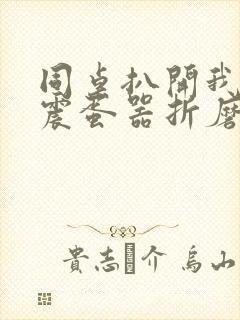 同桌扒開我
震蛋器折磨
貴志介 烏山